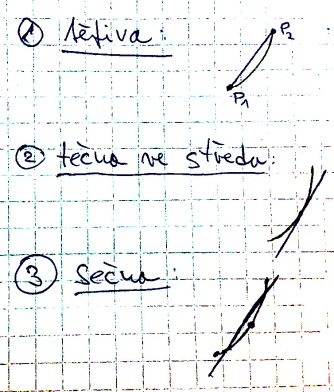 ① tětiva:
P2
P1
② tečna ve středu:
③ sečna: